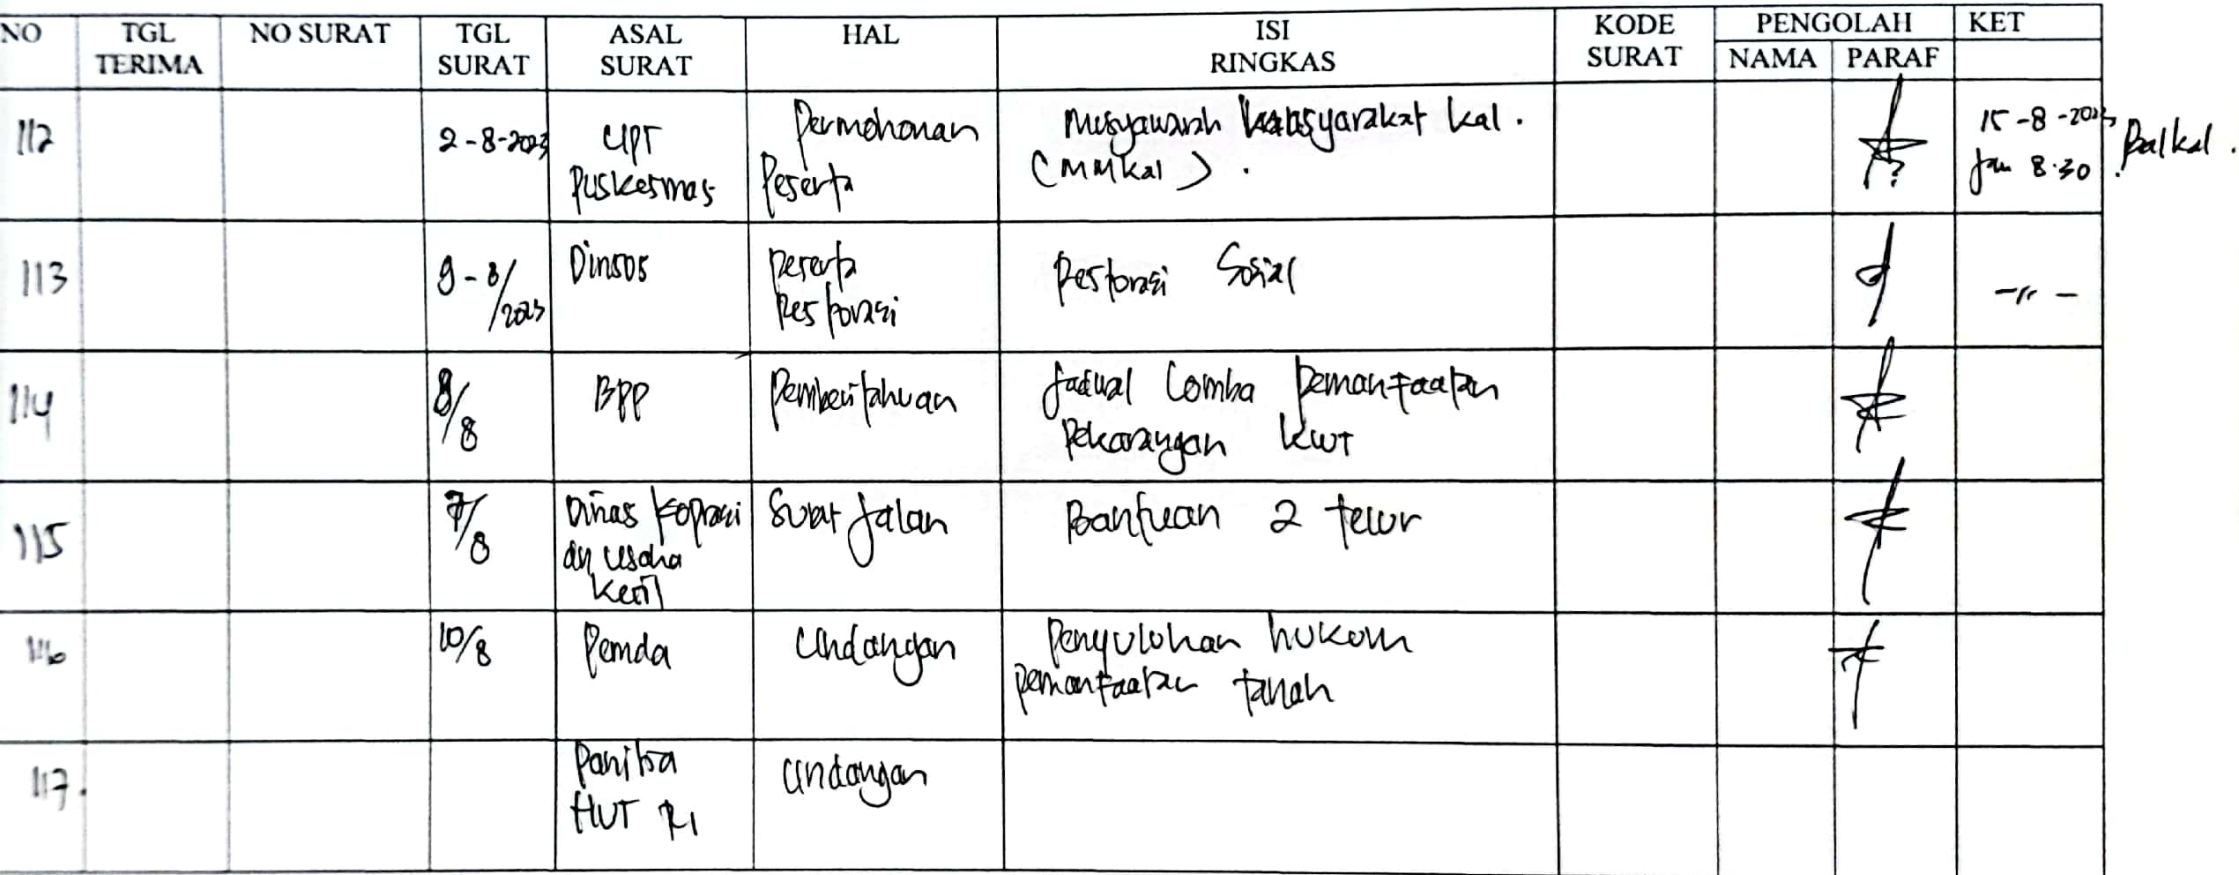 NO TGL TERIMA NO SURAT TGL SURAT ASAL SURAT HAL ISI RINGKAS KODE SURAT PENGOLAH KET
NAMA PARAF
112 2-8-2023 UPT Puskesmas Permohonan Peserta Musyawarah Masyarakat Kal. (MMKal). 15-8-2023 Jam 8.30 Balkal.
113 9-8/2023 Dinsos Peserta Restorasi Restorasi Sosial -〃-
114 8/8 BPP Pemberitahuan Jadual Lomba Pemanfaatan Pekarangan KWT
115 7/8 Dinas Koprasi dn Usaha Kecil Surat Jalan Bantuan 2 telur
116 10/8 Pemda Undangan Penyuluhan hukum Pemanfaatan tanah
117. Panitia HUT RI Undangan